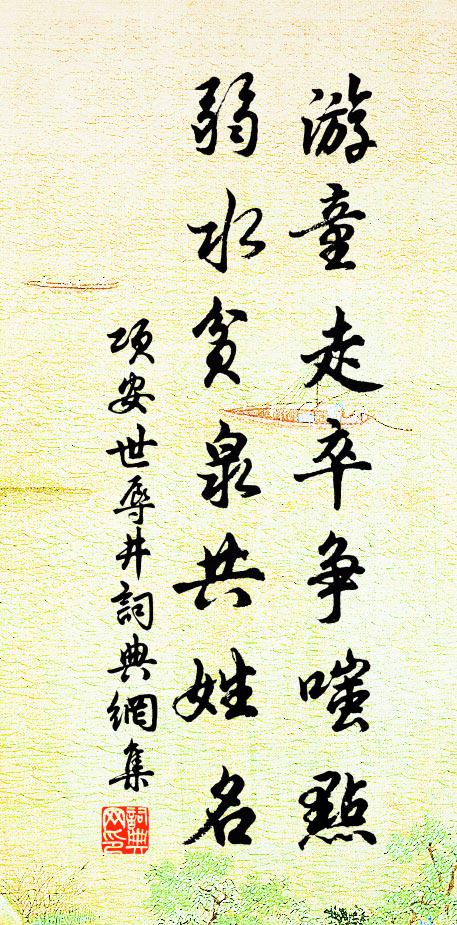 游童走卒争嗤點
弱水贫泉共姓名
项安世辱井詞典網集
詞典网印